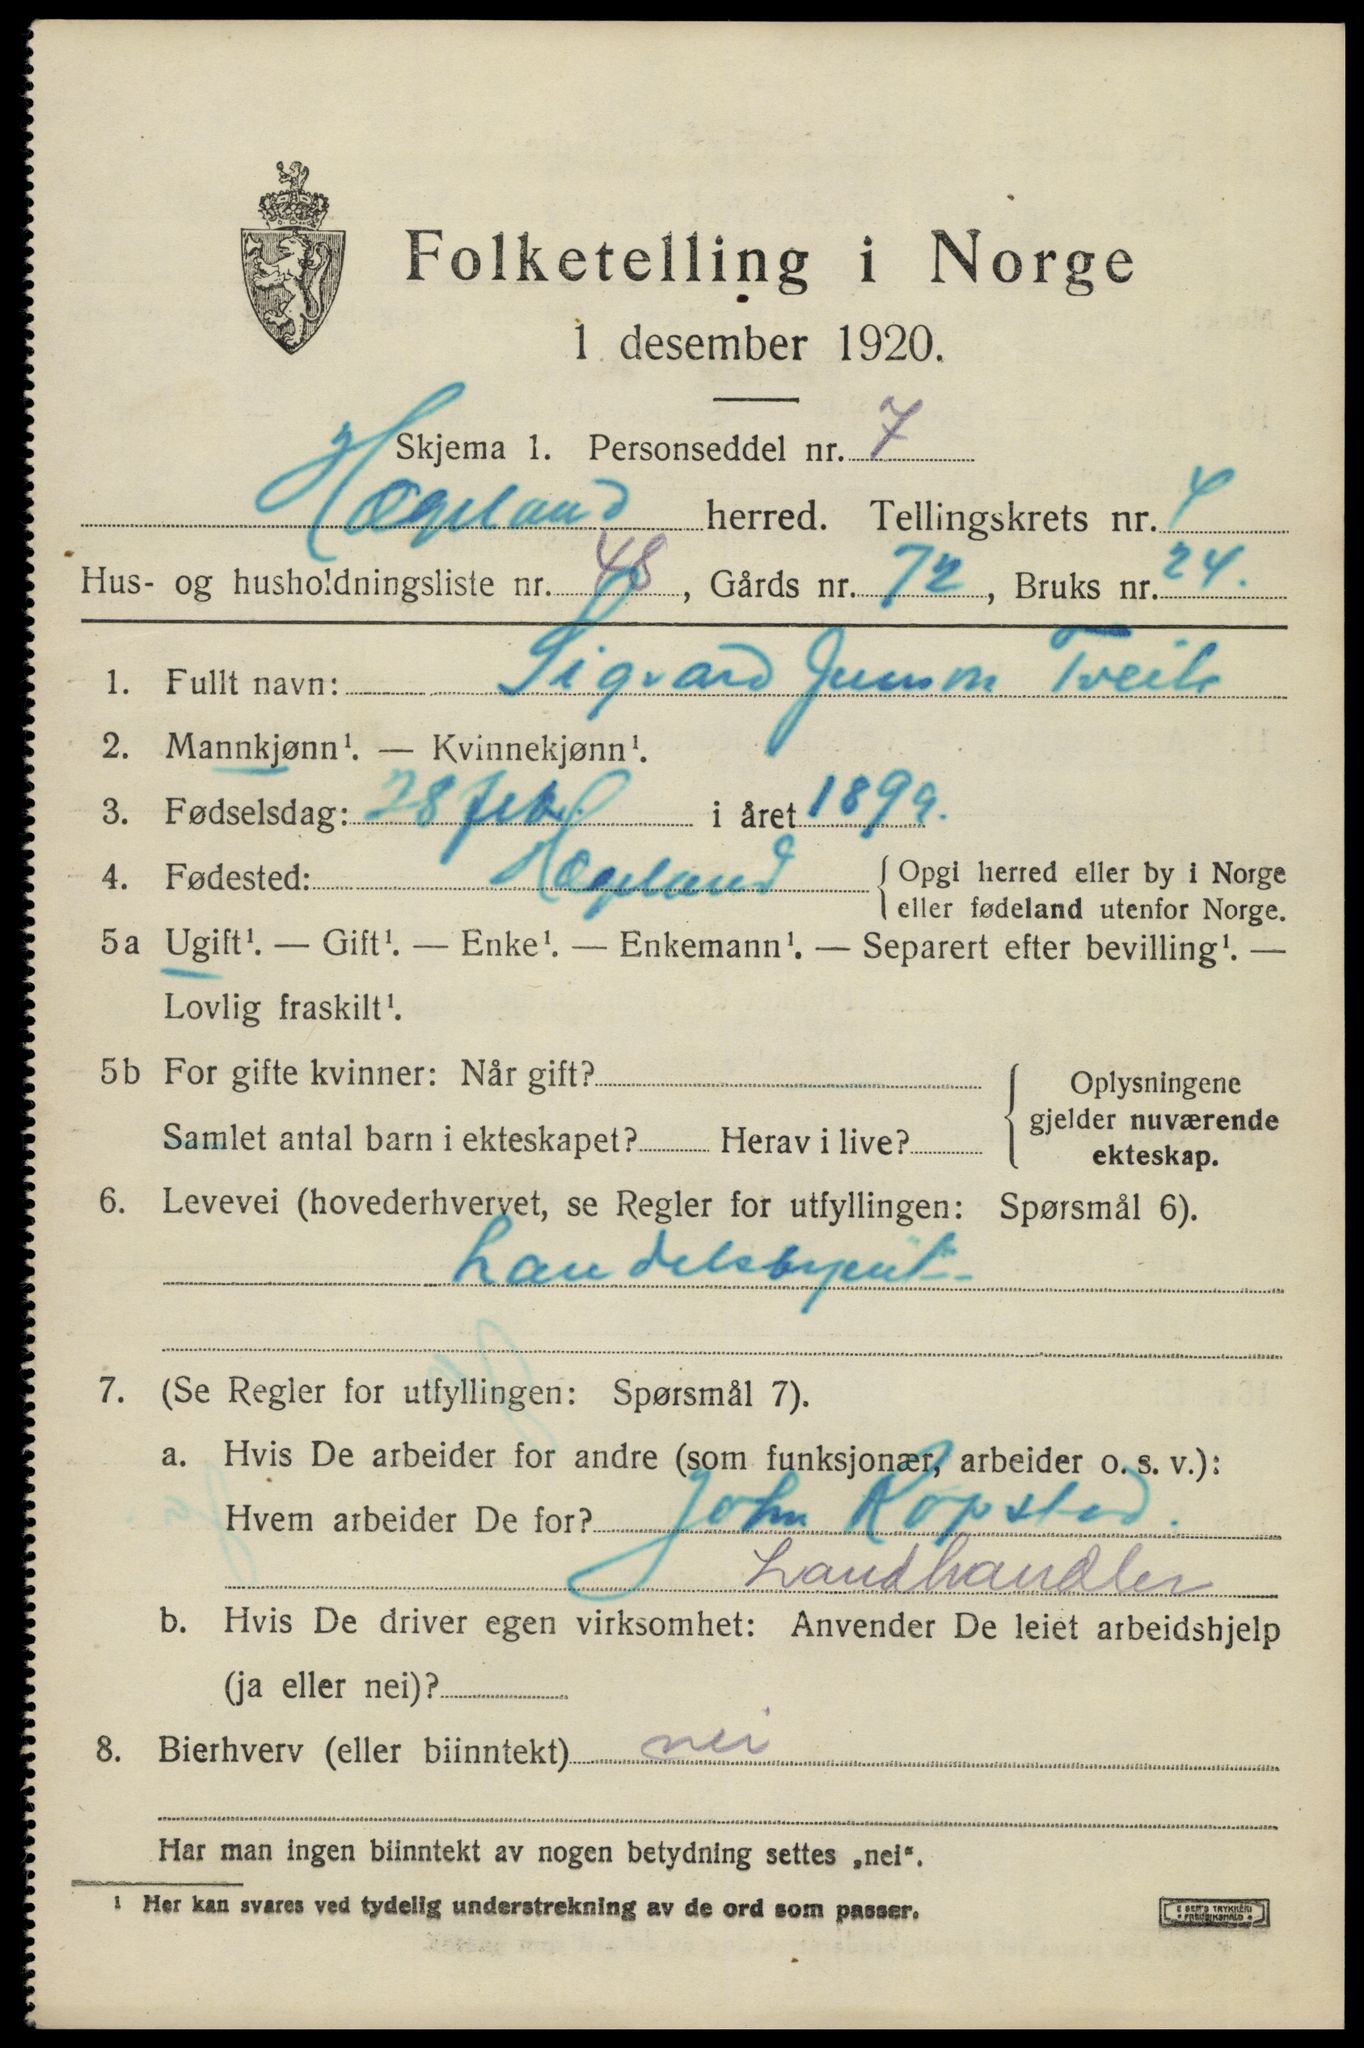 Folketelling i Norge
1 desember 1920.
Skjema 1. Personseddel nr. 7
Hægeland herred. Tellingskrets nr. 4
Hus- og husholdningsliste nr. 48, Gårds nr. 72, Bruks nr. 24.
1. Fullt navn: Sigvard Tveit
2. Mannkjønn¹. — Kvinnekjønn¹.
3. Fødselsdag: 28 feb. i året 1899.
4. Fødested: Hægeland {Opgi herred eller by i Norge
eller fødeland utenfor Norge.
5a Ugift¹. — Gift¹. — Enke¹. — Enkemann¹. — Separert efter bevilling¹. —
Lovlig fraskilt¹.
5b For gifte kvinner: Når gift?
Samlet antal barn i ekteskapet? Herav i live?
Oplysningene
gjelder nuværende
ekteskap.
6. Levevei (hovederhvervet, se Regler for utfyllingen: Spørsmål 6).
7. (Se Regler for utfyllingen: Spørsmål 7).
a. Hvis De arbeider for andre (som funksjonær, arbeider o. s. v.):
Hvem arbeider De for? John Kopstad.
Landhandler
b. Hvis De driver egen virksomhet: Anvender De leiet arbeidshjelp
(ja eller nei)?
8. Bierhverv (eller biinntekt) nei
Har man ingen biinntekt av nogen betydning settes „nei“.
¹ Her kan svares ved tydelig understrekning av de ord som passer.
E SEM'S TRYKKERI
FREDRIKSHALD